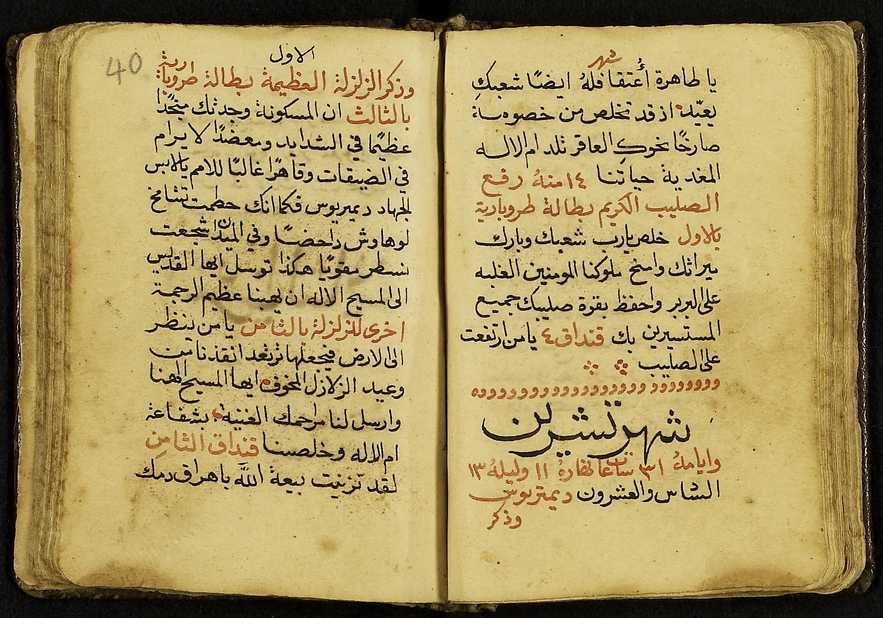 شهر
يا طاهرة أعتقا فله ايضًا شعبكِ
يعيّد اذ قد تخلص من خصومة
صارخًا نحوكِ العاقر تلد ام الاله
المغدية حياتنا ١٤ منهُ رفع
الصليب الكريم بطالة طروبارية
بالاول خلص يارب شعبك وبارك
ميراثك وامنح ملوكنا المومنين الغلبه
على البربر واحفظ بقوة صليبك جميع
المستسيرين بك قنداق ٤ يا من ارتفعت
على الصليب
شهر تشرين
وايامهُ ٣١ ساعات نهارهُ ١١ وليلهُ ١٣
السادس والعشرون ديمتريوس
وذكر
الاول
40
وذكر الزلزلة العظيمة بطالة طروبارية
بالثالث ان المسكونة وجدتك منجدًا
عظيمًا في الشدايد ومعضدًا لا يرام
في الضيقات وقاهرًا غالبًا للامم يالابس
الجهاد ديميريوس فكما انك حطمت تشامخ
لوهاوش داحضًا وفي الميدان شجعت
نسطر مقويًا هكذا توسل ايها القديس
الى المسيح الاله ان يهبنا عظيم الرحمة
اخرى للزلزلة بالثامن يا من ينظر
الى الارض فيجعلها ترتعد انقذنا من
وعيد الزلازل المخوف ايها المسيح الهنا
وارسل لنا مراحمك الغنية بشفاعة
ام الاله وخلصنا قنداق الثامن
لقد تزينت بيعة الله باهراق دمك